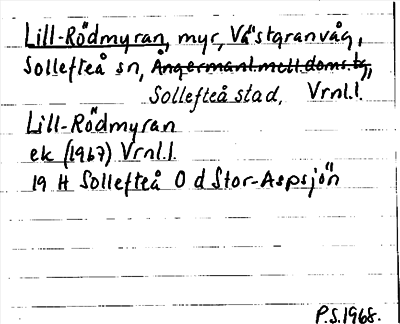 Lill-Rödmyran, myr, Västgranvåg,
Sollefteå sn, Ångermanl. mell. doms. tg,
Sollefteå stad, Vrnl.l.
Lill-Rödmyran
ek (1967) Vrnl.l.
19 H Sollefteå O d Stor-Aspsjön
P.S. 1968.